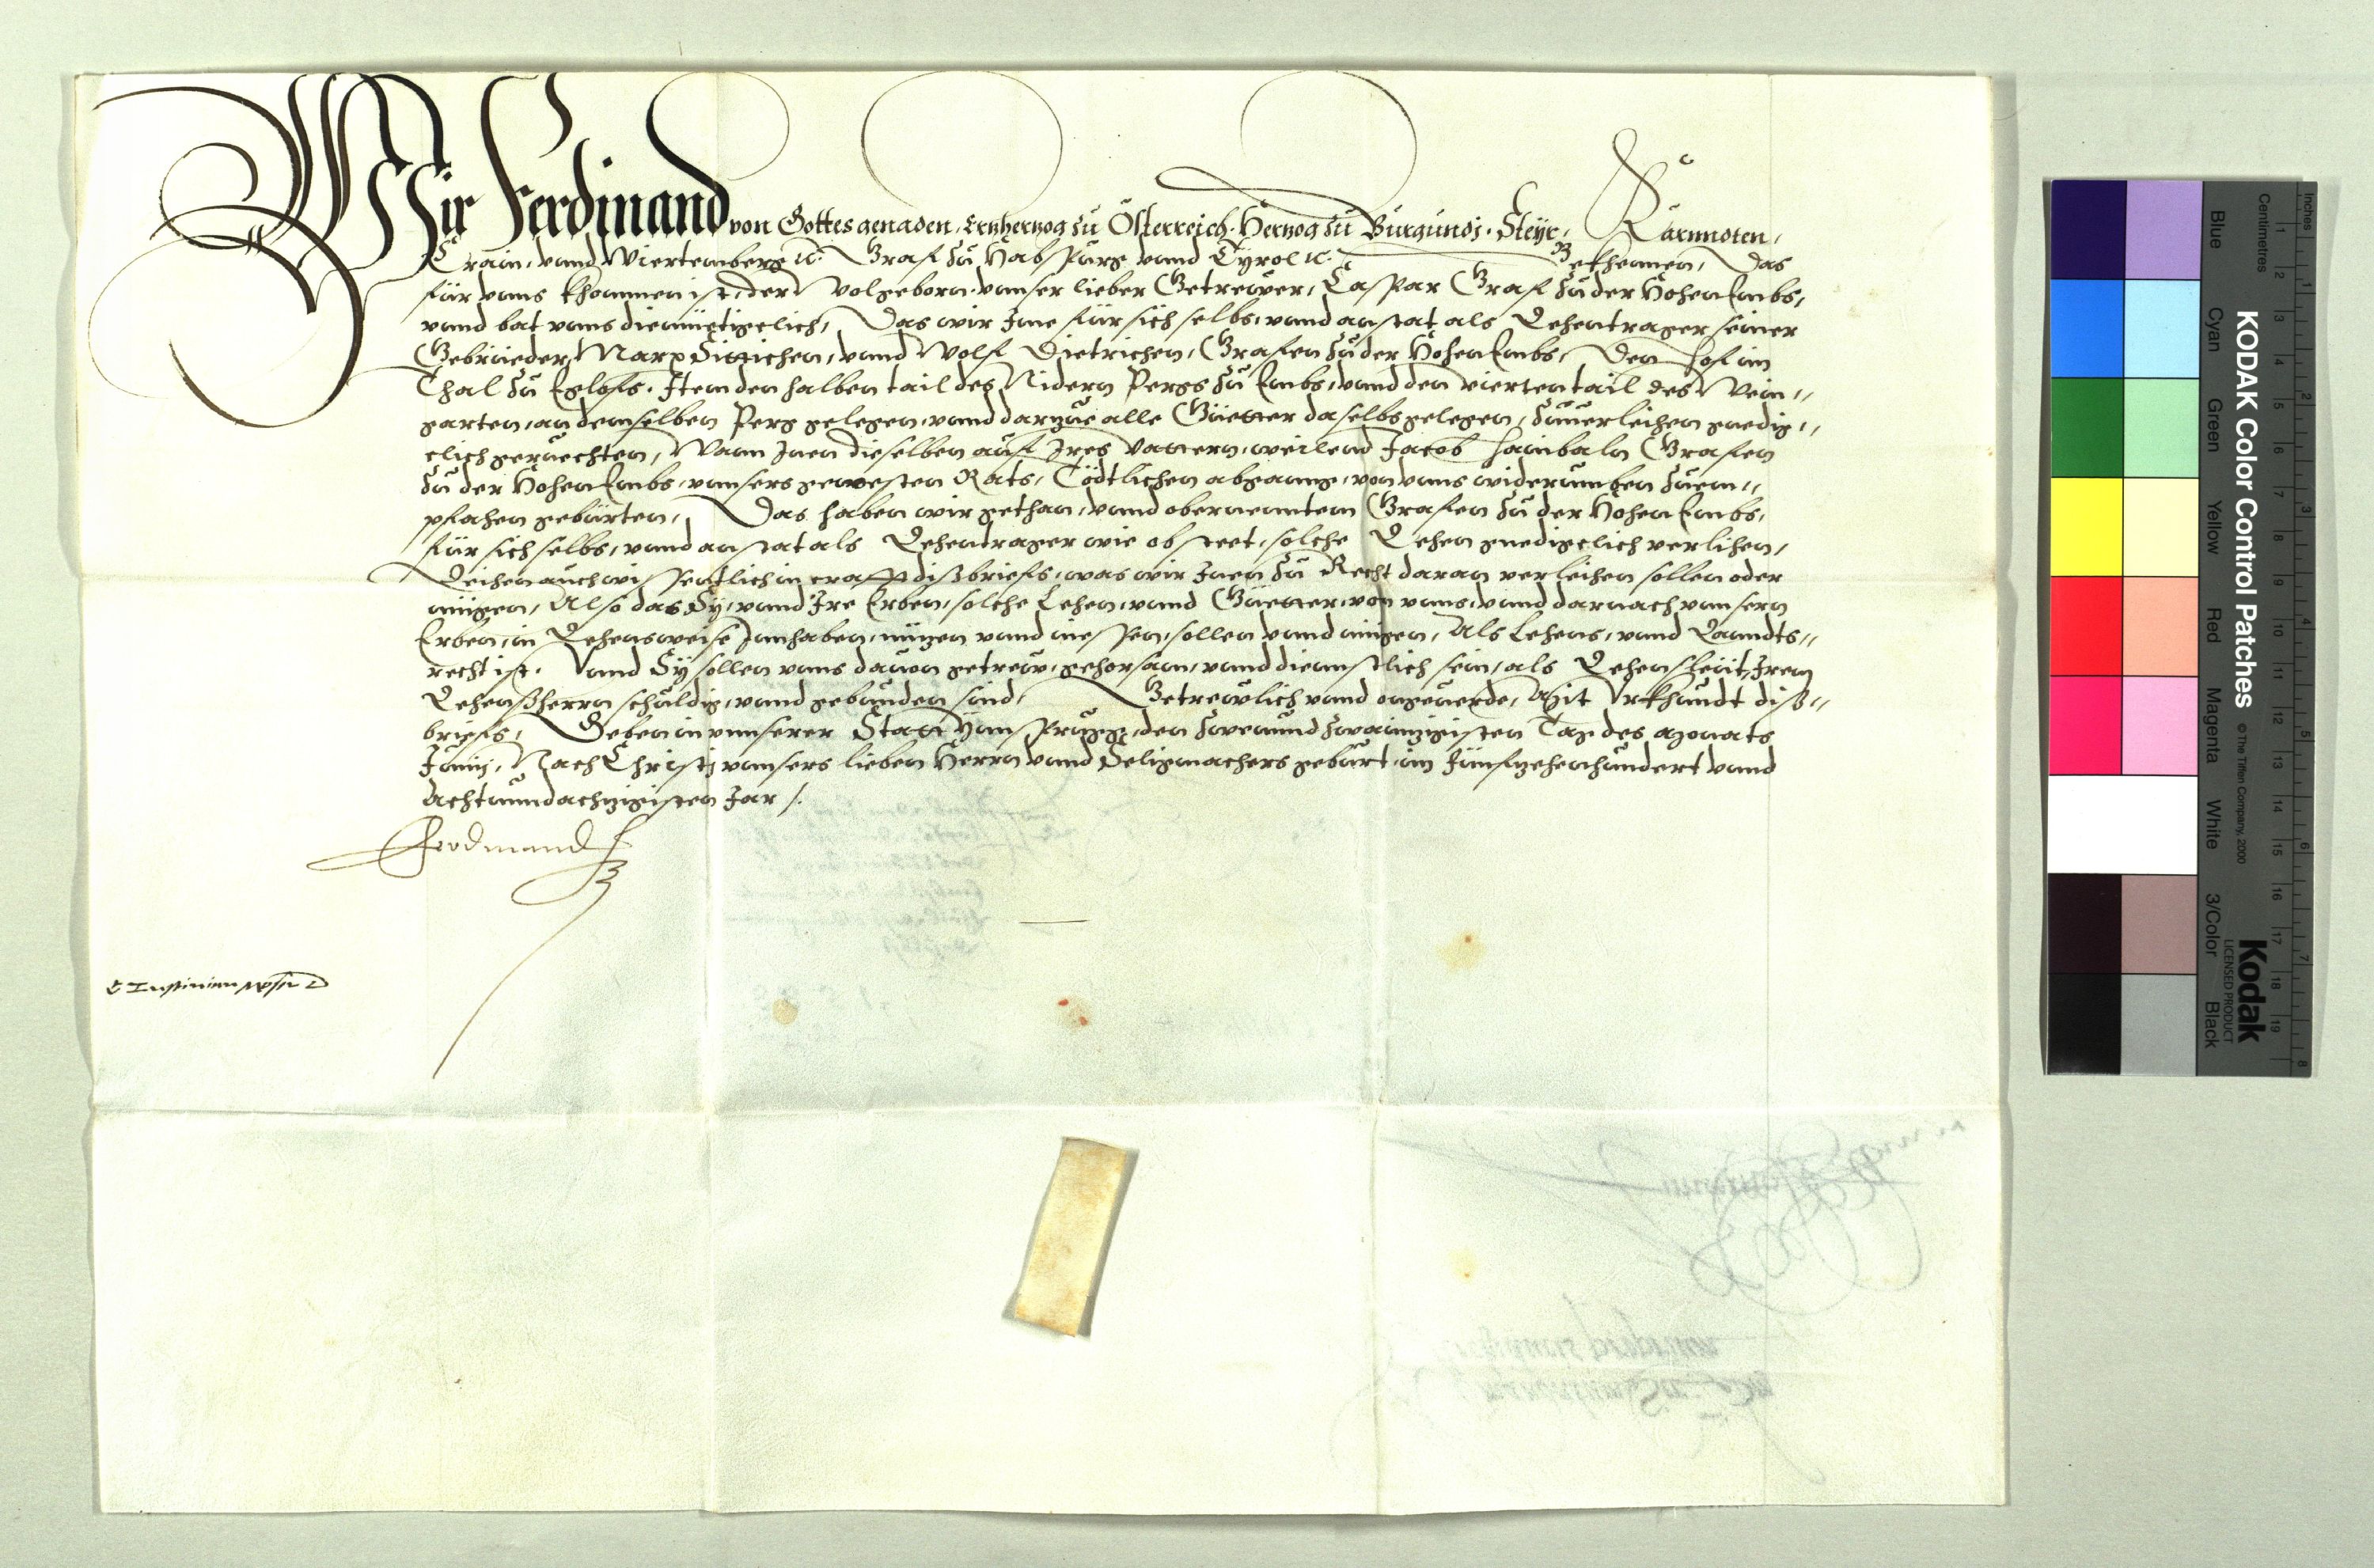 Wir Ferdinand von Gottes genaden, Ertzhertzog zu Österreich, Hertzog zu Burgundj, Steyr, Kärnndten,
Crain, vnnd Wiertemberg ꝛc. Graf zů Habspurg vnnd Tyrol ꝛc. Bekhennen, Das
für vnns khommen ist, der Wolgeborn vnnser lieber Getrewer, Caspar Graf zů der Hohen Embs,
vnnd bat vnns diemüetigelich, Das wir Jne für sich selbs, vnnd anstat als Lehentrager seiner
Gebrüeder, Marx Sittichen, vnnd Wolf Dietrichen, Grafen zů der Hohen Embs, Den Hof im
Thal zů Eglofs. Item den halben tail des Nidern Pergs zů Embs, vnnd den vierten tail des Wein„
garten, an demselben Perg gelegen, vnnd darzue alle Güetter daselbs gelegen, zůuerleihen gnedig„
clich geruechten, Wann Jnen dieselben auf Jres Vattern, weilend Jacob Hannibaln Grafen
zů der Hohen Embs, vnnsers gewesten Rats, Tödtlichen abgang, von vnns widerumben zůem„
pfahen gebürten, Das haben wir gethan, vnnd obernenntem Grafen zů der Hohen Embs,
für sich selbs, vnnd anstat als Lehentrager wie obsteet, solche Lehen gnedigclich verlihen,
Leihen auch wissentlich in crafft diß briefs, was wir Jnen zů Recht daran verleihen sollen oder
mügen, Also das Sy, vnnd Jre Erben, solche Lehen, vnnd Güetter, von vnns, vnnd darnach vnnsern
Erben, in Lehensweise Jnnhaben, nützen vnnd niessen, sollen vnnd mügen, Als Lehens, vnnd Lanndts„
recht ist. Vnnd Sy sollen vnns dauon getrew, gehorsam, vnnd diennstlich sein, als Lehensleüt, Jrem
Lehenßherrn schuldig, vnnd gebunden sind, Getrewlich vnnd ongeuerde, Mit Vrkhundt diß„
briefs, Geben in vnnserer Statt Ynnsprugg, den zwenundzwainzigisten Tag des monats
Junij, Nach Christj vnnsers lieben Herrn vnnd Seligmachers gebürt, im Fünfzehenhundert vnnd
Achtunndachtzigisten Jar /.
Ferdinand
KODAK Color Control Patches
© The Tiffen Company, 2000
Kodak
LICENSED PRODUCT
Blue Cyan Green Yellow Red Magenta White 3/Color Black
Inches 1 2 3 4 5 6 7 8
Centimetres 1 2 3 4 5 6 7 8 9 10 11 12 13 14 15 16 17 18 19